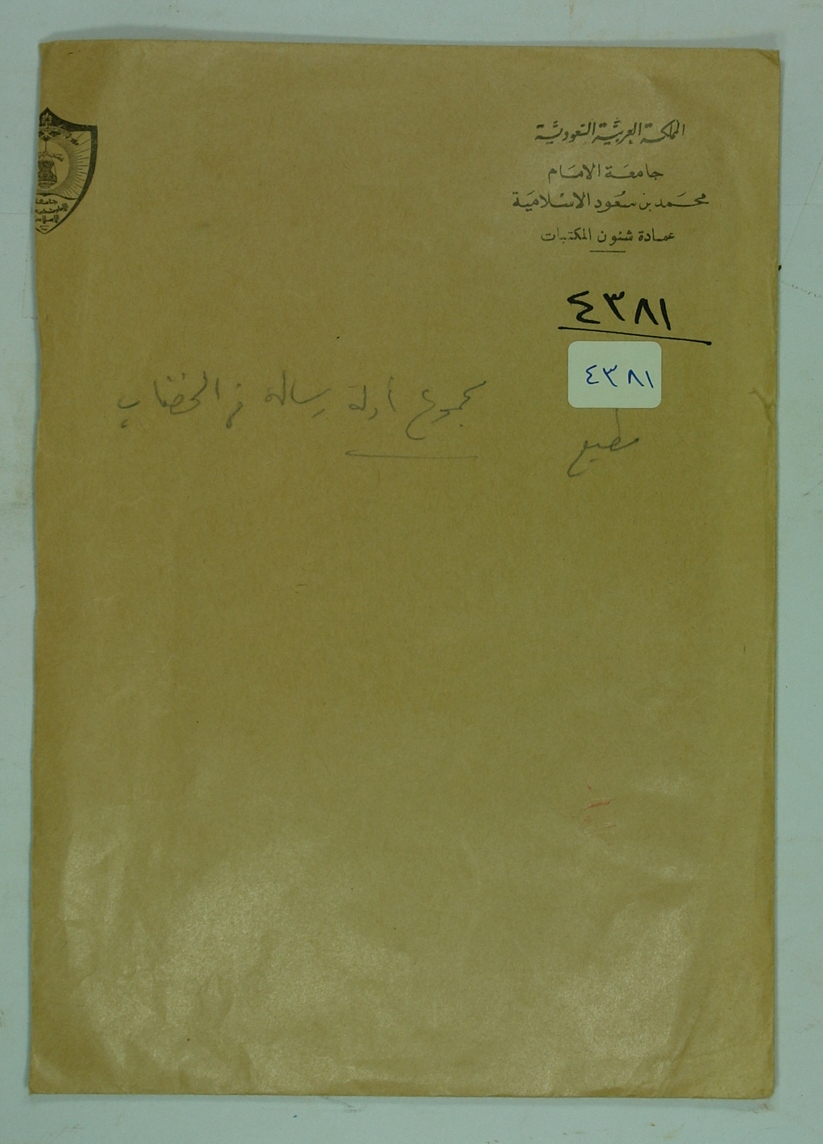 المملكة العربية السعودية
جامعة الامام
محمد بن سعود الاسلامية
عمادة شئون المكتبات
٤٣٨١
٤٣٨١
مجموع أوله رسالة في الخضاب